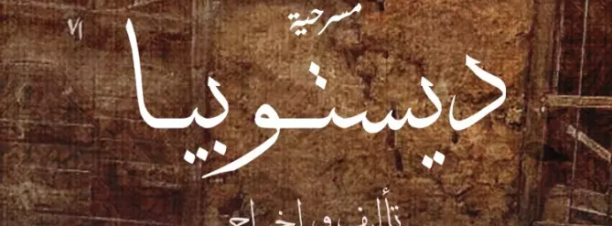 مسرحية
ديستوبيا
تأليف و إخراج